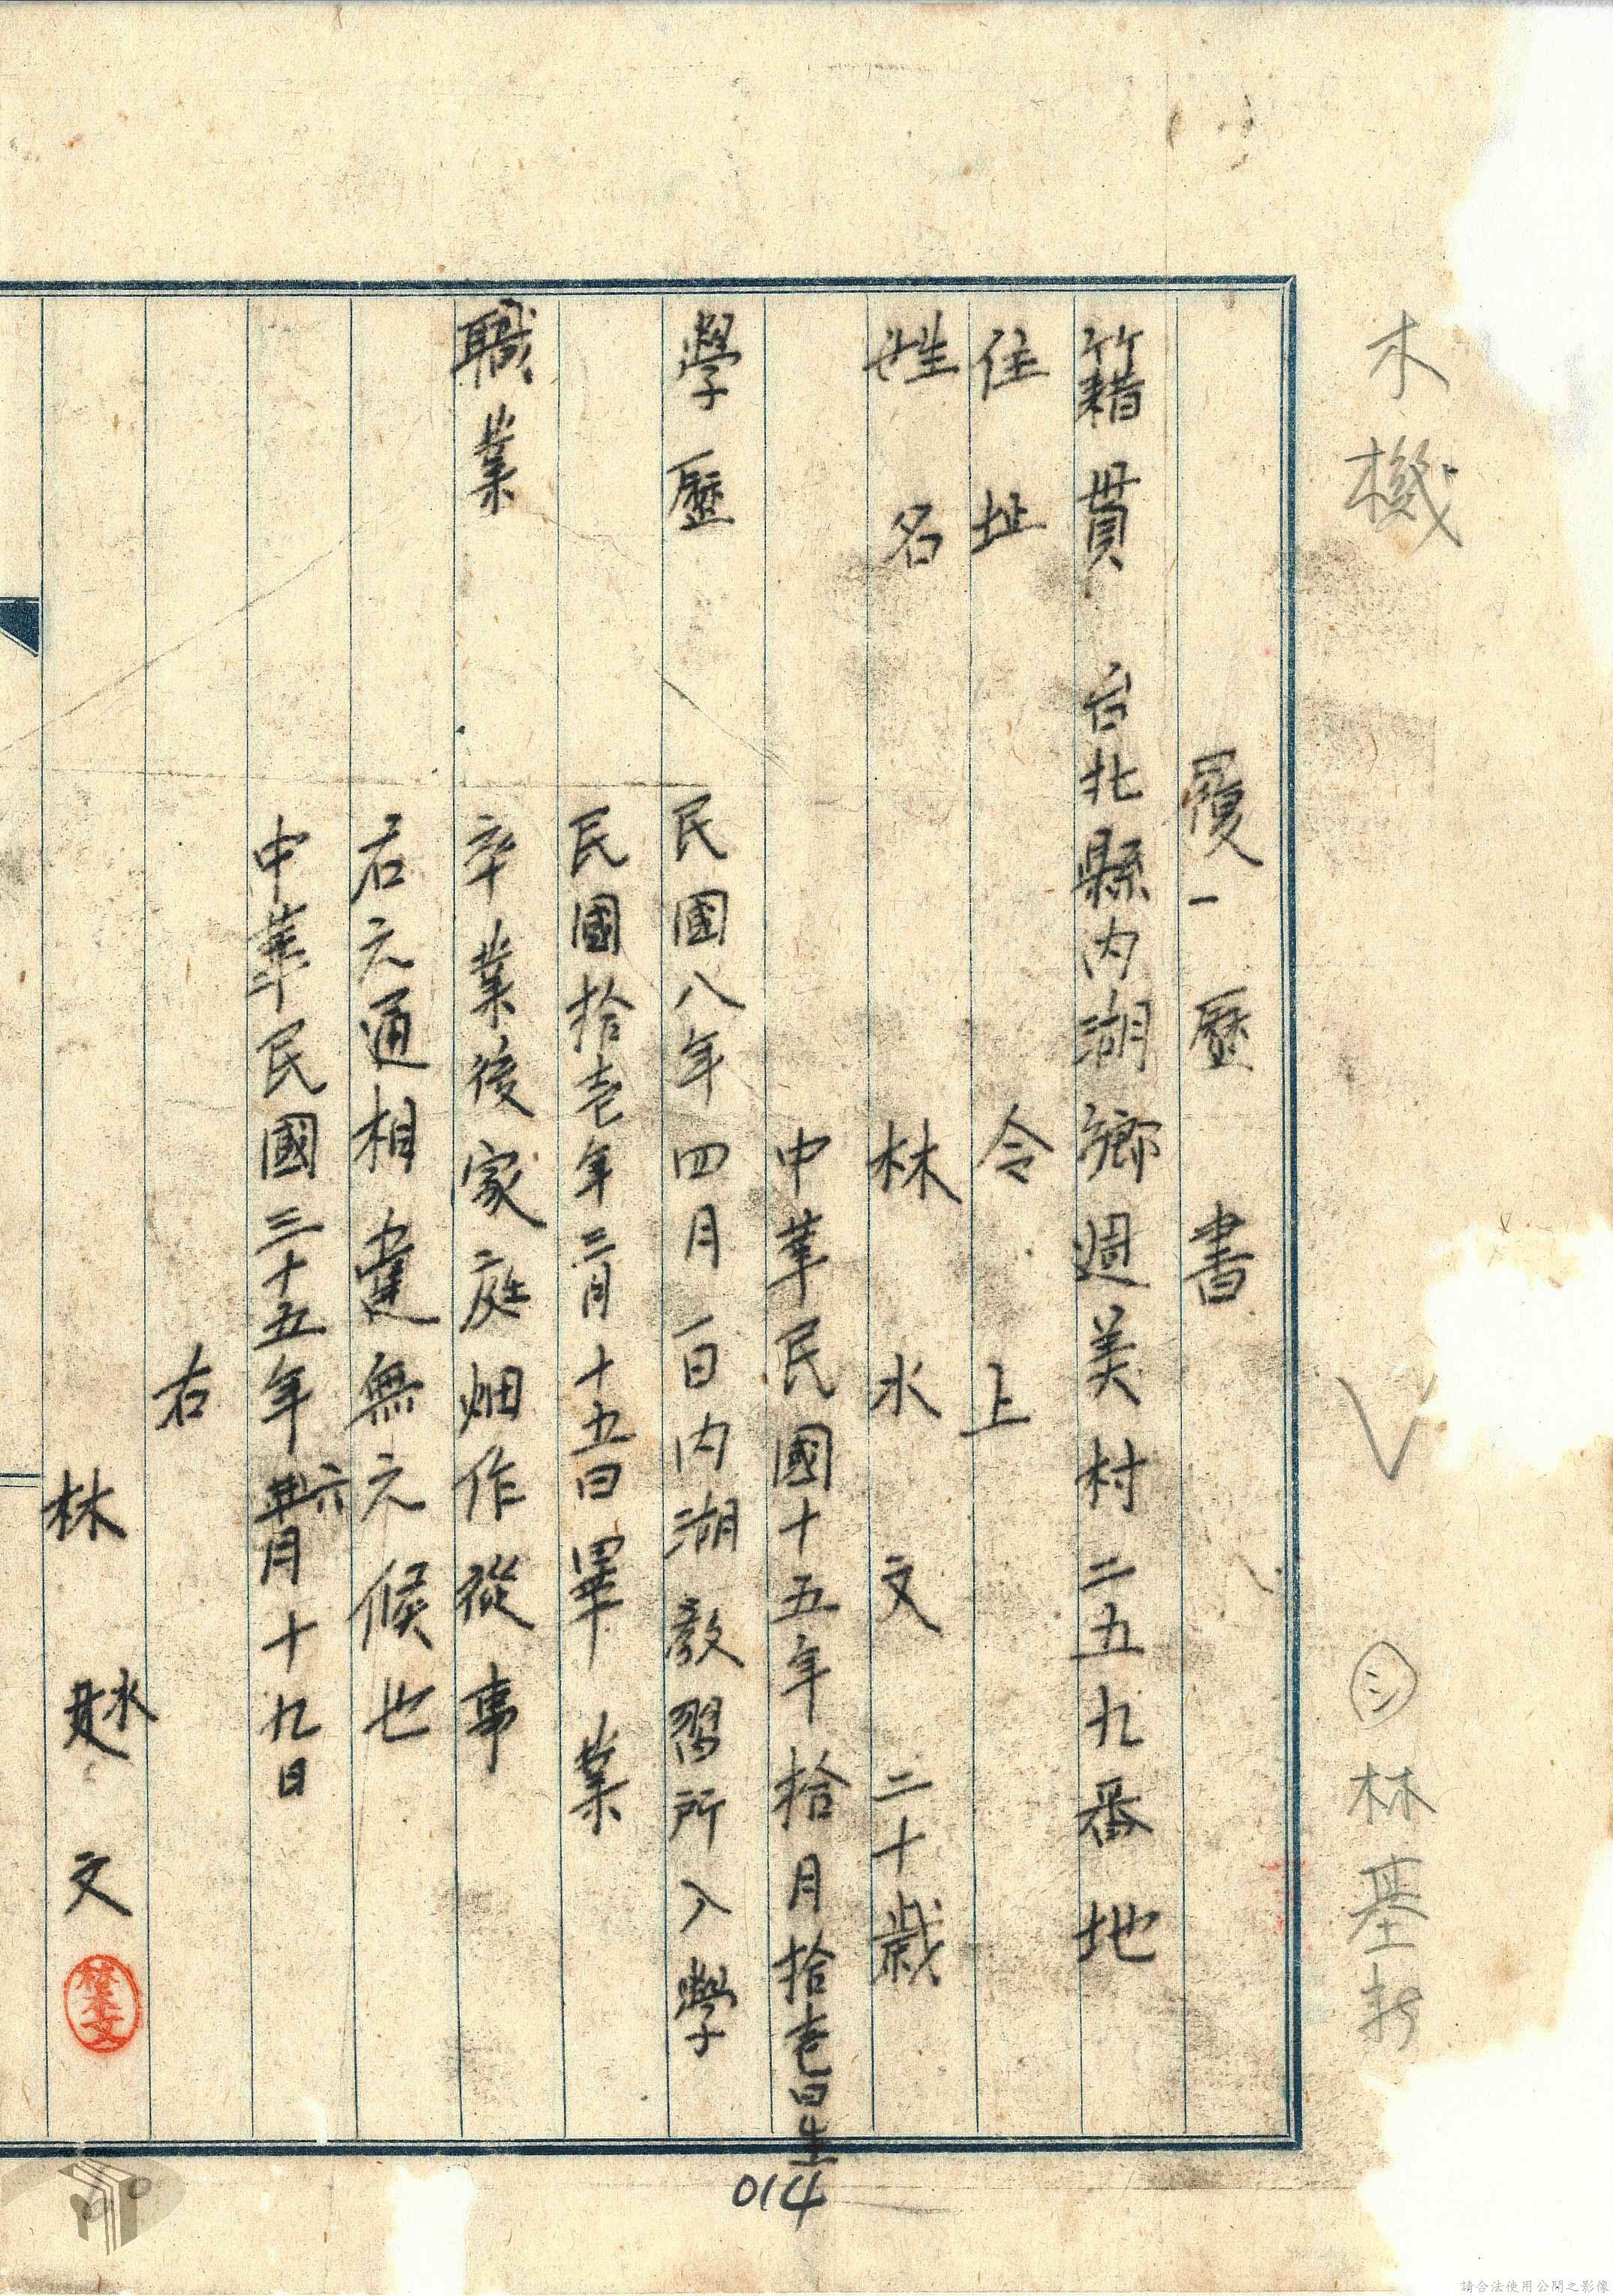 木機 ㋛林基新
履歷書
籍貫 台北縣內湖鄉週美村二五九番地
住址 仝上
姓名 林水文 二十歲
中華民國十五年拾月拾壱日生
學歷 民國八年四月一日內湖教習所入學
民國拾壱年三月十五日畢業
職業 卒業後家庭畑作從事
右之通相違無之候也
中華民國三十五年六月十九日
右
林水文
014
請合法使用公開之影像